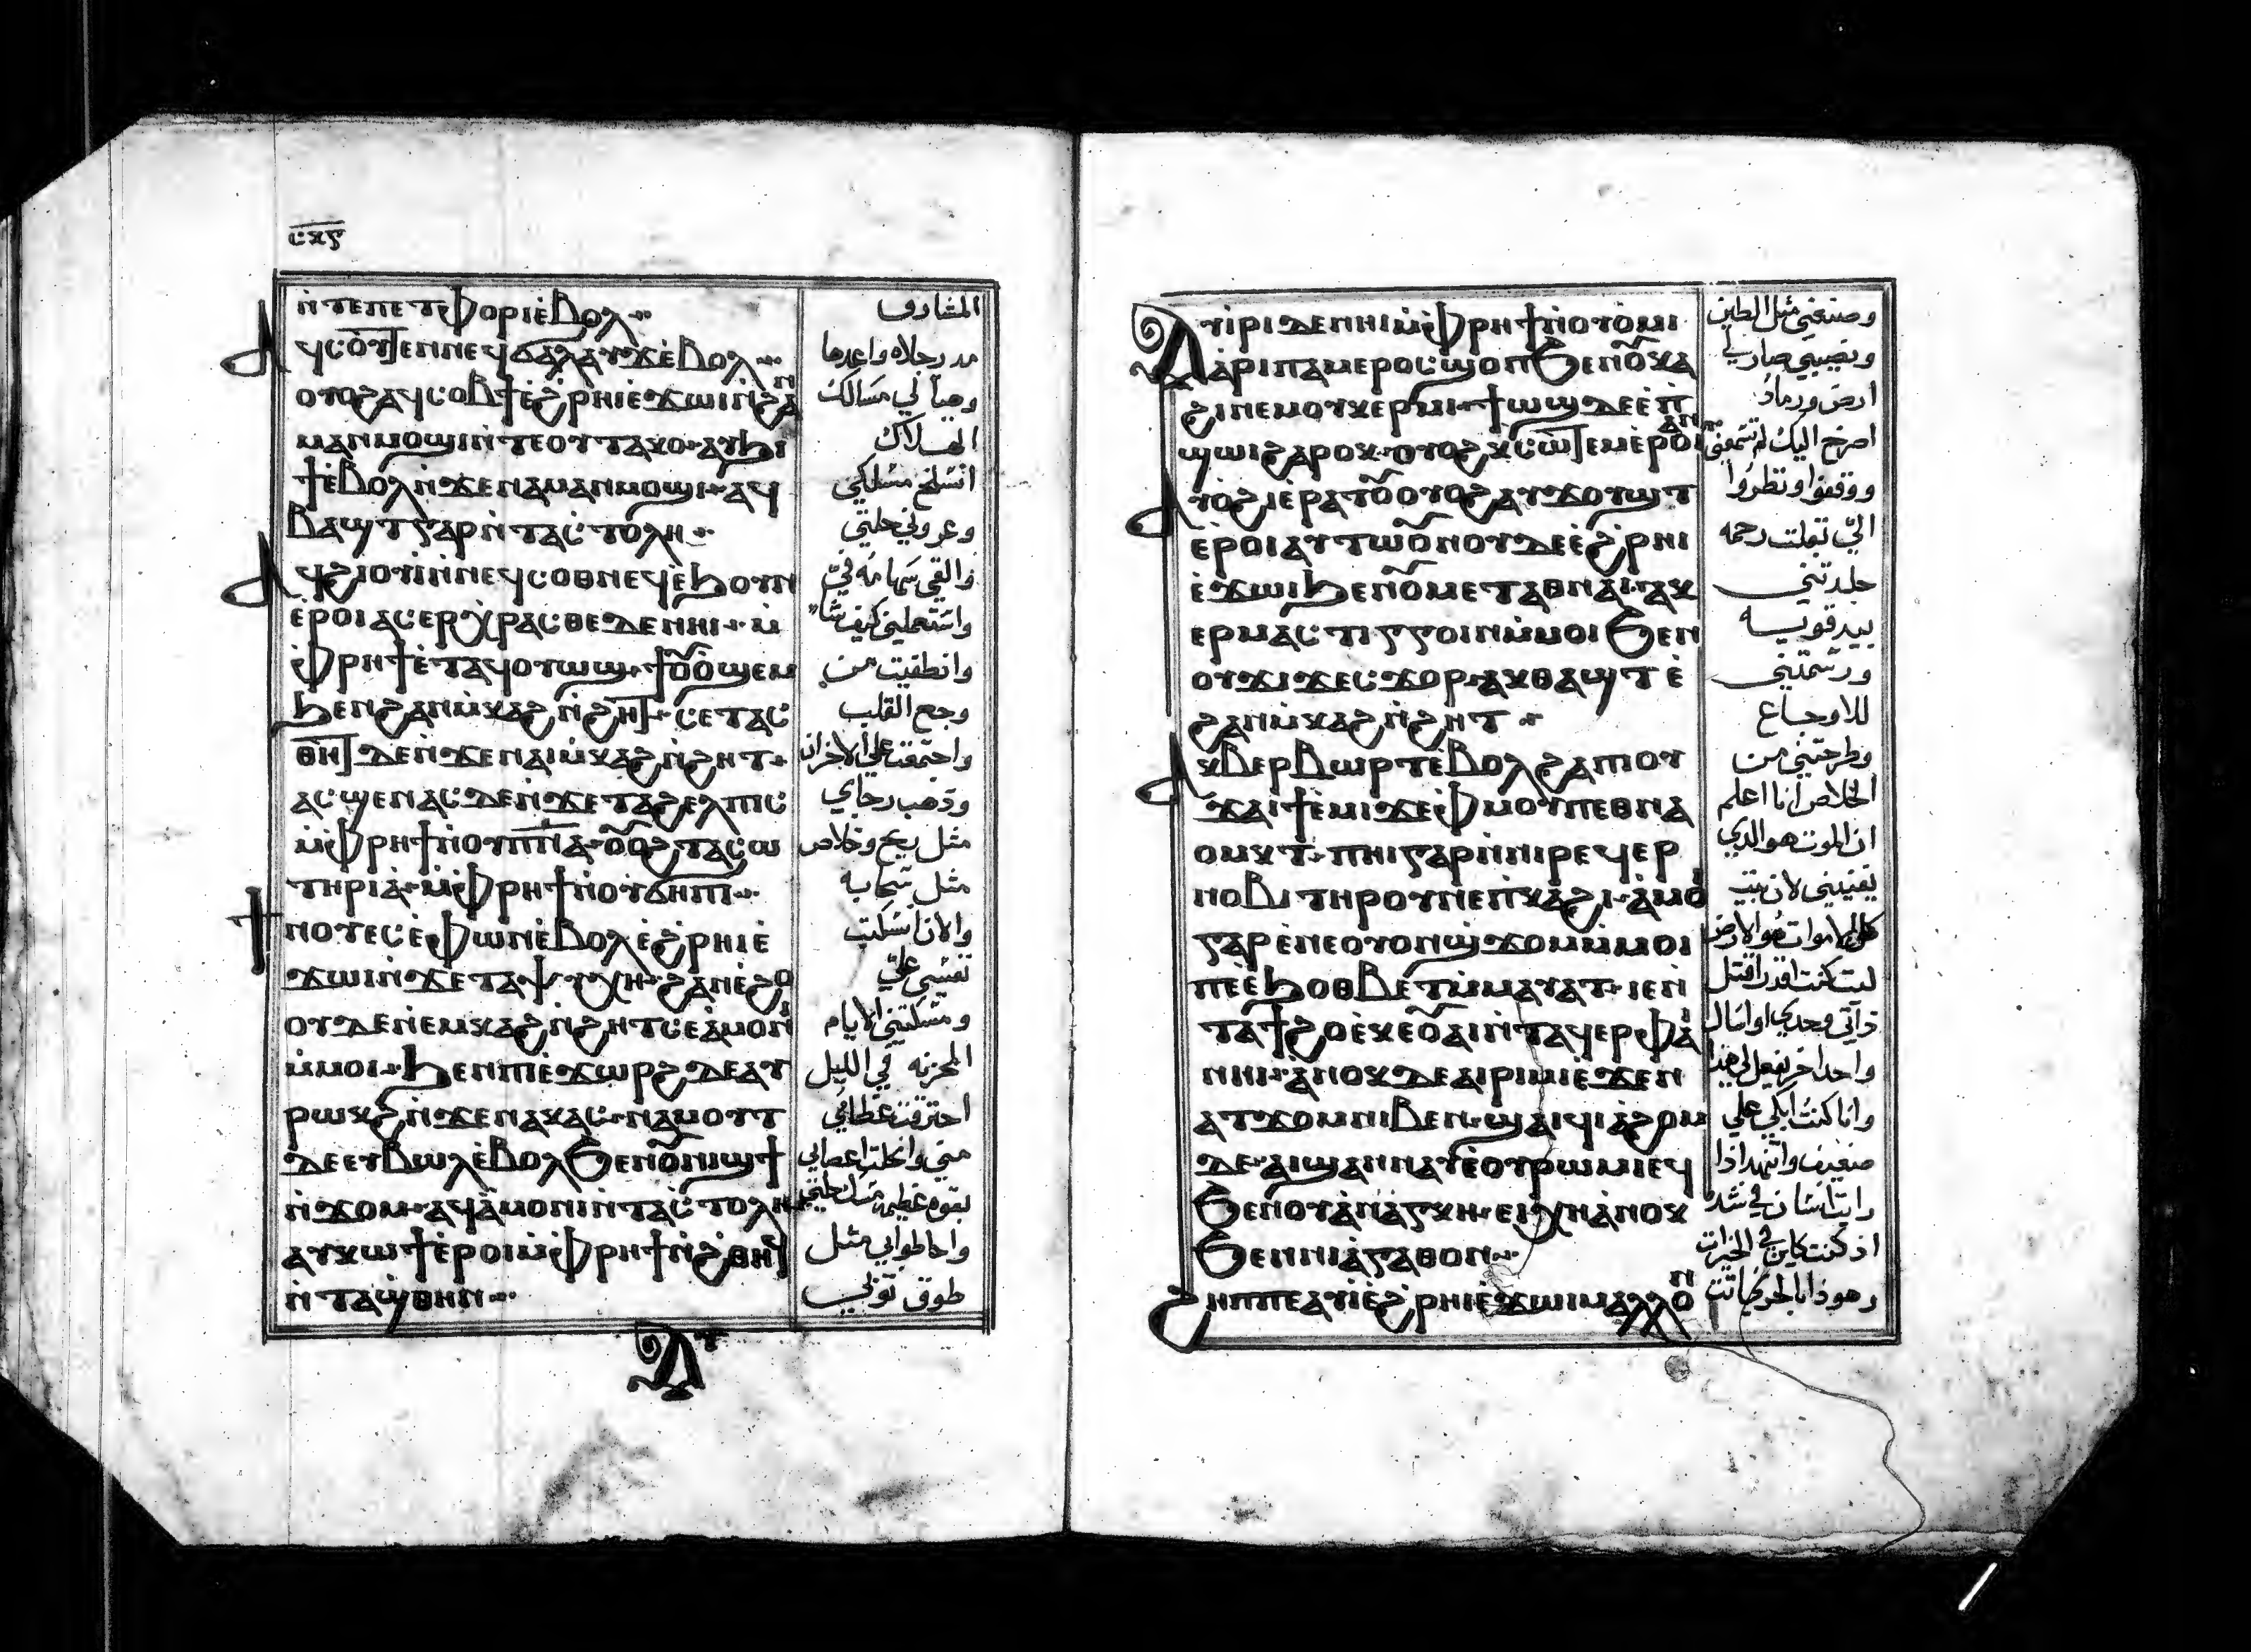 ⲥⲝⲋ
ⲛ̀ⲧⲉⲡⲉⲧⲫⲟⲣⲓⲉ̀ⲃⲟⲗ
ⲁϥⲥⲟⲩⲧⲉⲛⲛⲉϥϭⲁⲗⲁⲩϫⲉ̀ⲃⲟⲗ
ⲟⲩⲟϩⲁϥⲥⲟⲃϯⲉ̀ϩ̀ⲣⲏⲓⲉ̀ϫⲱⲓⲛ̀ϩⲁⲛ
ⲙⲁⲛⲙⲟϣⲓⲛ̀ⲧⲉⲟⲩⲧⲁⲕⲟ ⲁⲩϧⲓ
ϯⲉ̀ⲃⲟⲗⲛ̀ϫⲉⲛⲁⲙⲁⲛⲙⲟϣⲓ ⲁϥ
ⲃⲁϣⲧⲅⲁⲣⲛ̀ⲧⲁⲥ̀ⲧⲟⲗⲏ
ⲁϥϩⲓⲟⲩⲓ̀ⲛ̀ⲛⲉϥⲥⲟⲑⲛⲉϥⲉ̀ϧⲟⲩⲛ
ⲉ̀ⲣⲟⲓⲁⲥⲉⲣⲭ̀ⲣⲁⲥⲑⲉⲇⲉⲛⲏⲓ ⲙ̀
ⲫ̀ⲣⲏϯⲉ̀ⲧⲁϥⲟⲩⲱϣ ϯⲟ̅ⲟ̅ϣⲉⲙ
ϧⲉⲛϩⲁⲛⲙ̀ⲕⲁϩⲛ̀ϩⲏⲧ ⲥⲉⲧⲁⲥ
ⲑⲏⲧ ⲇⲉⲛ̀ϫⲉⲛⲁⲓⲙ̀ⲕⲁϩⲛ̀ϩⲏⲧ
ⲁⲥϣⲉⲛⲁⲥⲇⲉⲛ̀ϫⲉⲧⲁϩⲉⲗⲡⲓⲥ
ⲙ̀ⲫ̀ⲣⲏϯⲛ̀ⲟⲩⲡ̅ⲛ̅ⲁ̅ ⲟ̅ⲟ̅ϩⲧⲁⲥⲱ
ⲧⲏⲣⲓⲁ̀ ⲙ̀ⲫ̀ⲣⲏϯⲛ̀ⲟⲩϭⲏⲡⲓ
ϯⲛⲟⲩⲉⲥⲉ̀ⲫⲱⲛⲉ̀ⲃⲟⲗⲉ̀ϩ̀ⲣⲏⲓⲉ̀
ϫⲱⲓⲛ̀ϫⲉⲧⲁⲯⲩⲭⲏ ϩⲁⲛⲉ̀ϩⲟ
ⲟⲩⲇⲉⲛ̀ⲉⲙⲕⲁϩⲛ̀ϩⲏⲧⲥⲉⲁ̀ⲙⲟⲛⲓ
ⲙ̀ⲙⲟⲓ ϧⲉⲛⲡⲓⲉ̀ϫⲱⲣϩ ⲇⲉⲁⲩ
ⲣⲱⲕϩⲛ̀ϫⲉⲛⲁⲕⲁⲥ ⲛⲁⲙⲟⲩⲧ
ⲇⲉⲉⲩⲃⲱⲗⲉ̀ⲃⲟⲗ ϧⲉⲛⲟ̅ⲛⲓϣϯ
ⲛ̀ϫⲟⲙ ⲁϥⲁ̀ⲙⲟⲛⲓⲛ̀ⲧⲁⲥ̀ⲧⲟⲗⲏ
ⲁⲩⲕⲱϯⲉ̀ⲣⲟⲓⲙ̀ⲫ̀ⲣⲏϯⲛ̀ϩ̀ⲑⲏϥ
ⲛ̀ⲧⲁϣ̀ⲑⲏⲛ
المشارف
مد رجلاه واعدها
وهيأ لي مسالك
الهلاك
انسلخ مسلكي
وعروني حلتي
والقي سهامه في
واستعملني كيف شا
وانطفيت من
وجع القلب
واجتمعت علي الاحزان
وذهب رجاي
مثل ريح وخلاص
مثل سحابه
والان انسكبت
نفسي علي
ومسكتني الايام
المحزنه في الليل
احترقت عظامي
مني وانحلت اعصابي
بقوه عظيمه مسك حلتي
واحاطوا بي مثل
طوق ثوبي
ⲁⲩ
ⲁⲩⲓ̀ⲣⲓⲇⲉⲛⲏⲓⲙ̀ⲫ̀ⲣⲏϯⲛ̀ⲟⲩⲟ̀ⲙⲓ
ⲁ̀ⲣⲓⲡⲁⲙⲉⲣⲟⲥϣⲟⲡϧⲉⲛⲟ̅ⲕⲁ
ϩⲓⲛⲉⲙⲟⲩⲕⲉⲣⲙⲓ ϯⲱϣⲇⲉⲉ̀ⲡ̀
ϣⲱⲓϩⲁⲣⲟⲕ ⲟⲩⲟϩⲕ̀ⲥⲱⲧⲉⲙⲉ̀ⲣⲟⲓⲁⲛ
ⲁⲩⲟ̀ϩⲓⲉ̀ⲣⲁⲧⲟ̅ⲟⲩⲟϩⲁⲩϫⲟⲩϣⲧ
ⲉ̀ⲣⲟⲓⲁⲩⲧⲱⲟ̅ⲛⲟⲩⲇⲉⲉ̀ϩ̀ⲣⲏⲓ
ⲉ̀ϫⲱⲓϧⲉⲛⲟ̅ⲙⲉⲧⲁⲑⲛⲁⲓ ⲁⲕ
ⲉⲣⲙⲁⲥⲧⲓⲅⲅⲟⲓⲛⲙ̀ⲙⲟⲓ ϧⲉⲛ
ⲟⲩϫⲓϫⲉⲥϫⲟⲣ ⲁⲕⲑⲁϣⲧⲉ̀
ϩⲁⲛⲙ̀ⲕⲁϩⲛ̀ϩⲏⲧ
ⲁⲕⲃⲉⲣⲃⲱⲣⲧⲉ̀ⲃⲟⲗϩⲁⲡⲓⲟⲩ
ϫⲁⲓϯⲉ̀ⲙⲓϫⲉⲫ̀ⲙⲟⲩⲡⲉⲑⲛⲁ
ⲟⲙⲕⲧ ⲡⲏⲓⲅⲁⲣⲛ̀ⲛⲓⲣⲉϥⲉⲣ
ⲛⲟⲃⲓⲧⲏⲣⲟⲩⲡⲉⲡ̀ⲕⲁ̀ϩⲓ ⲁ̀ⲙⲟⲓ
ⲅⲁⲣⲉ̀ⲛⲉⲟⲩⲟⲛϣ̀ϫⲟⲙⲙ̀ⲙⲟⲓ
ⲡⲉⲉ̀ϧⲟⲑⲃⲉⲧⲙ̀ⲙⲁⲩⲁⲧ ⲓⲉⲛ̀
ⲧⲁϯϩⲟⲉ̀ⲕⲉⲟ̅ⲁⲓⲛ̀ⲧⲁϥⲉⲣⲫⲁⲓ
ⲛⲏⲓ ⲁ̀ⲛⲟⲕⲇⲉⲁⲓⲣⲓⲙⲓⲉ̀ϫⲉⲛ
ⲁⲧϫⲟⲙⲛⲓⲃⲉⲛ ϣⲁⲓϥⲓⲁ̀ϩⲟⲙ
ⲇⲉ ⲁⲓϣⲁⲛⲛⲁⲩⲉ̀ⲟⲩⲣⲱⲙⲓⲉϥ
ϧⲉⲛⲟⲩⲁ̀ⲛⲁⲅⲕⲏ ⲉⲓⲭⲏⲁ̀ⲛⲟⲕ
ϧⲉⲛⲛⲓⲁ̀ⲅⲁⲑⲟⲛ
ϩⲏⲡⲡⲉⲁⲩⲓ̀ⲉ̀ϩ̀ⲣⲏⲓⲉ̀ϫⲱⲓⲙⲁⲗⲗⲟⲛ
وصنعني مثل الطين
ونصيبي صار في
ارض ورماد
اصرخ اليك لم تسمعني
ووقفوا ونظروا
الي بقلت رحمه
جلدتني
بيد قويه
ورسمتني
للاوجاع
وطرحتني من
الخلاص انا اعلم
ان الموت هو الدي
يفنيني لان بيت
كل الاموات هو الارض
ليت كنت اقدر اقتل
ذاتي وحدي او اسال
واحدا اخر يفعل لي هذا
وانا كنت ابكي علي
ضعيف واتنهد اذا
رايت انسان في شده
اذ كنت كاين في الخيرات